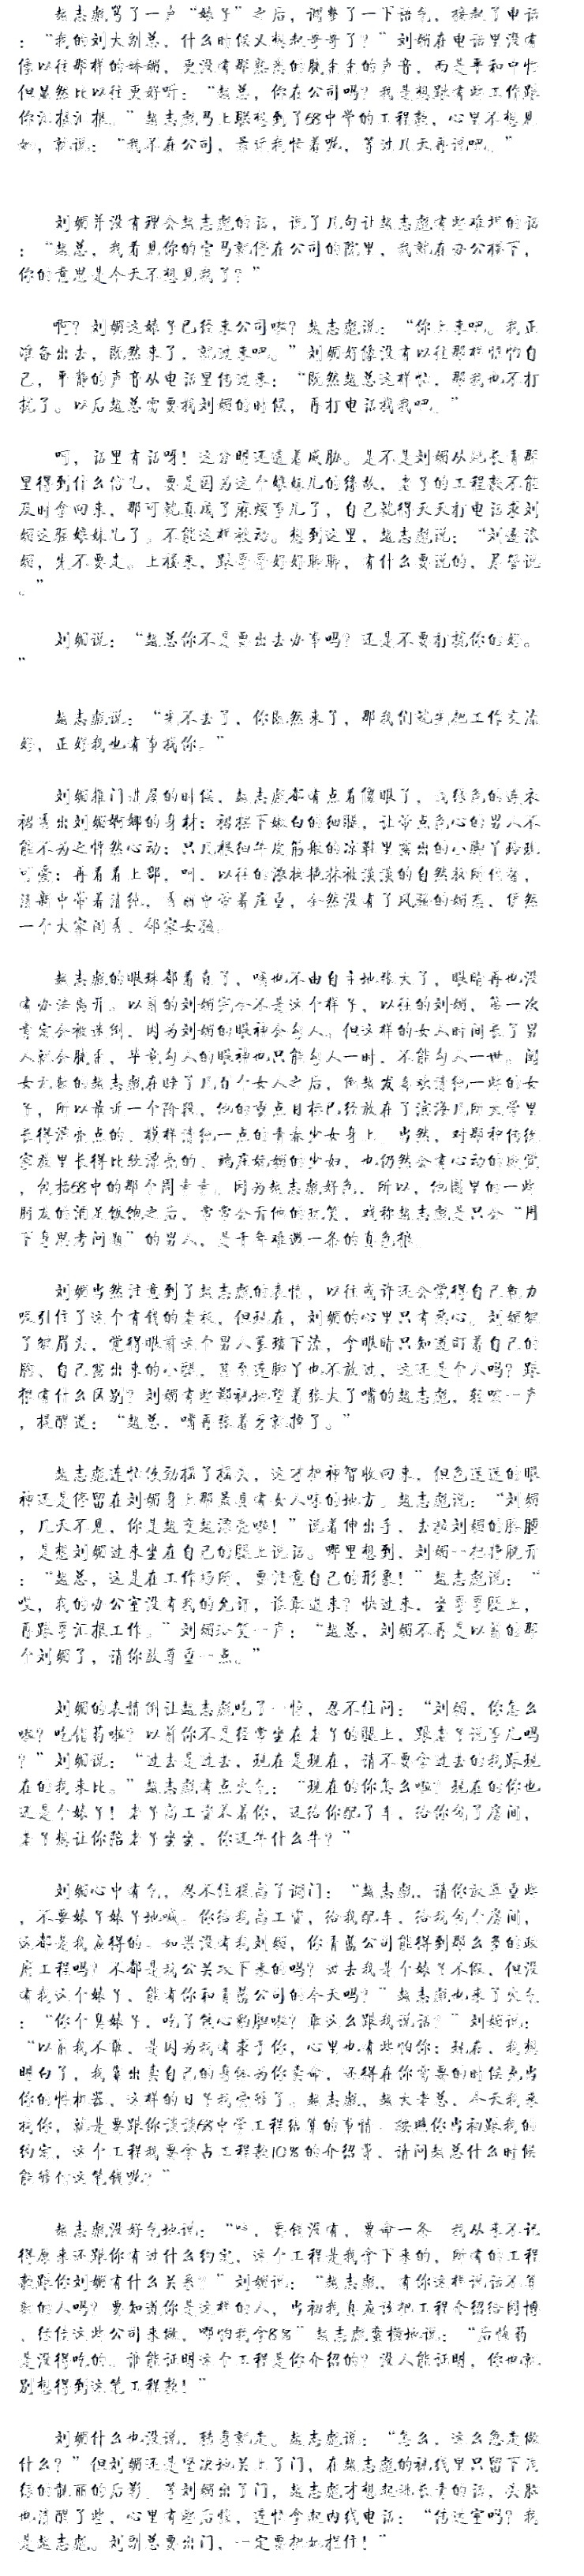 赵志彪骂了一声“婊子”之后，调整了一下语气，接起了电话
：“我的刘大副总，什么时候又想起哥哥了？”刘媚在电话里没有
像以往那样的娇媚，更没有那熟悉的脆歪歪的声音，而是平和中性
但显然比以往更好听：“赵总，你在公司吗？我是想跟有些工作跟
你汇报汇报。”赵志彪马上联想到了58中学的工程款，心里不想见
她，就说：“我不在公司，最近我忙着呢，等过几天再说吧。”
刘媚并没有理会赵志彪的话，说了几句让赵志彪有些难堪的话
：“赵总，我看见你的宝马就停在公司的院里，我就在办公楼下，
你的意思是今天不想见我了？”
啊？刘媚这婊子已经来公司啦？赵志彪说：“你上来吧。我正
准备出去，既然来了，就过来吧。”刘媚好像没有以往那样惧怕自
己，平静的声音从电话里传过来：“既然赵总这样忙，那我也不打
扰了。以后赵总需要我刘媚的时候，再打电话找我吧。”
呵，话里有话呀！这分明还透着威胁。是不是刘媚从姚长青那
里得到什么信儿，要是因为这个婊妹儿的缘故，老子的工程款不能
及时拿回来，那可就真成了麻烦事儿了，自己就得天天打电话求刘
媚这骚婊妹儿了。不能这样被动。想到这里，赵志彪说：“刘媚
媚，先不要走。上楼来，跟哥哥好好聊聊，有什么要说的，尽管说
。”
刘媚说：“赵总你不是要出去办事吗？还是不要打扰你的好。
”
赵志彪说：“先不去了，你既然来了，那我们就先把工作交流
好，正好我也有事找你。”
刘媚推门进屋的时候，赵志彪都有点看傻眼了，浅绿色的连衣
裙秀出刘媚婀娜的身材；裙摆下嫩白的细腿，让带点色心的男人不
能不为之怦然心动；只几根细牛皮筋般的凉鞋里露出的小脚丫玲珑
可爱；再看看上部，呵，以往的浓妆艳抹被淡淡的自然妆所代替，
清新中带着清纯，秀丽中带着庄重，全然没有了风骚的媚态，俨然
一个大家闺秀、邻家女孩。
赵志彪的眼珠都看直了，嘴也不由自主地张大了，眼睛再也没
有办法离开。以前的刘媚完全不是这个样子，以往的刘媚，第一次
肯定会被迷倒，因为刘媚的眼神会勾人。但这样的女人时间长了男
人就会腻歪，毕竟勾人的眼神也只能勾人一时，不能勾人一世。阅
女无数的赵志彪在睡了几百个女人之后，倒越发喜欢清纯一些的女
子，所以最近一个阶段，他的重点目标已经放在了滨海几所大学里
长得漂亮点的、模样清纯一点的青春少女身上。当然，对那种传统
家庭里长得比较漂亮的、端庄娴媚的少妇，也仍然会有心动的感觉
，包括58中的那个周幸幸。因为赵志彪好色，所以，他圈里的一些
朋友的酒足饭饱之后，常常会开他的玩笑，戏称赵志彪是只会“用
下身思考问题”的男人，是千年难遇一条的真色狼。
刘媚当然注意到了赵志彪的表情，以往或许还会觉得自己魅力
吸引住了这个有钱的老板，但现在，刘媚的心里只有恶心。刘媚皱
了皱眉头，觉得眼前这个男人萎琐下流，拿眼睛只知道盯着自己的
胸、自己露出来的小腿，甚至连脚丫也不放过，这还是个人吗？跟
猪有什么区别？刘媚有些鄙视地望着张大了嘴的赵志彪，轻咳一声
，提醒道：“赵总，嘴再张着牙就掉了。”
赵志彪连忙使劲摇了摇头，这才把神智收回来，但色迷迷的眼
神还是停留在刘媚身上那最具有女人味的地方。赵志彪说：“刘媚
，几天不见，你是越变越漂亮啦！”说着伸出手，去拉刘媚的胳膊
，是想刘媚过来坐在自己的腿上说话。哪里想到，刘媚一把挣脱开
：“赵总，这是在工作场所，要注意自己的形象！”赵志彪说：“
哎，我的办公室没有我的允许，谁敢进来？快过来，坐哥哥腿上，
再跟哥汇报工作。”刘媚冷笑一声：“赵总，刘媚不再是以前的那
个刘媚了，请你放尊重一点。”
刘媚的表情倒让赵志彪吃了一惊，忍不住问：“刘媚，你怎么
啦？吃错药啦？以前你不是经常坐在老子的腿上，跟老子说事儿吗
？”刘媚说：“过去是过去，现在是现在，请不要拿过去的我跟现
在的我来比。”赵志彪有点火气：“现在的你怎么啦？现在的你也
还是个婊子！老子高工资养着你，还给你配了车，给你包了房间，
老子想让你陪老子坐坐，你还牛什么牛？”
刘媚心中有气，忍不住提高了调门：“赵志彪，请你放尊重些
，不要婊子婊子地喊。你给我高工资，给我配车，给我包个房间，
这都是我应得的。如果没有我刘媚，你青蓝公司能得到那么多的政
府工程吗？不都是我公关攻下来的吗？过去我是个婊子不假，但没
有我这个婊子，能有你和青蓝公司的今天吗？”赵志彪也来了火气
：“你个臭婊子，吃了熊心豹胆啦？敢这么跟我说话？”刘媚说：
“以前我不敢，是因为我有求于你，心里也有些怕你；现在，我想
明白了，我靠出卖自己的身体为你卖命，还得在你需要的时候充当
你的性机器，这样的日子我受够了。赵志彪，赵大老总，今天我来
找你，就是要跟你谈谈58中学工程结算的事情。按照你当初跟我的
约定，这个工程我要拿占工程款10%的介绍费，请问赵总什么时候
能够付这笔钱呢？”
赵志彪没好气地说：“哼，要钱没有，要命一条。我从来不记
得原来还跟你有过什么约定，这个工程是我拿下来的，所有的工程
款跟你刘媚有什么关系？”刘媚说：“赵志彪，有你这样说话不算
数的人吗？要知道你是这样的人，当初我真应该把工程介绍给同博
、信信这些公司来做，哪怕我拿8%”赵志彪蛮横地说：“后悔药
是没得吃的。谁能证明这个工程是你介绍的？没人能证明，你也就
别想得到这笔工程款！”
刘媚什么也没说，转身就走。赵志彪说：“怎么，这么急走做
什么？”但刘媚还是坚决地关上了门，在赵志彪的视线里只留下浅
绿的靓丽的后影。等刘媚出了门，赵志彪才想起姚长青的话，头脑
也清醒了些，心里有些后悔，连忙拿起内线电话：“传达室吗？我
是赵志彪。刘副总要出门，一定要把她拦住！”